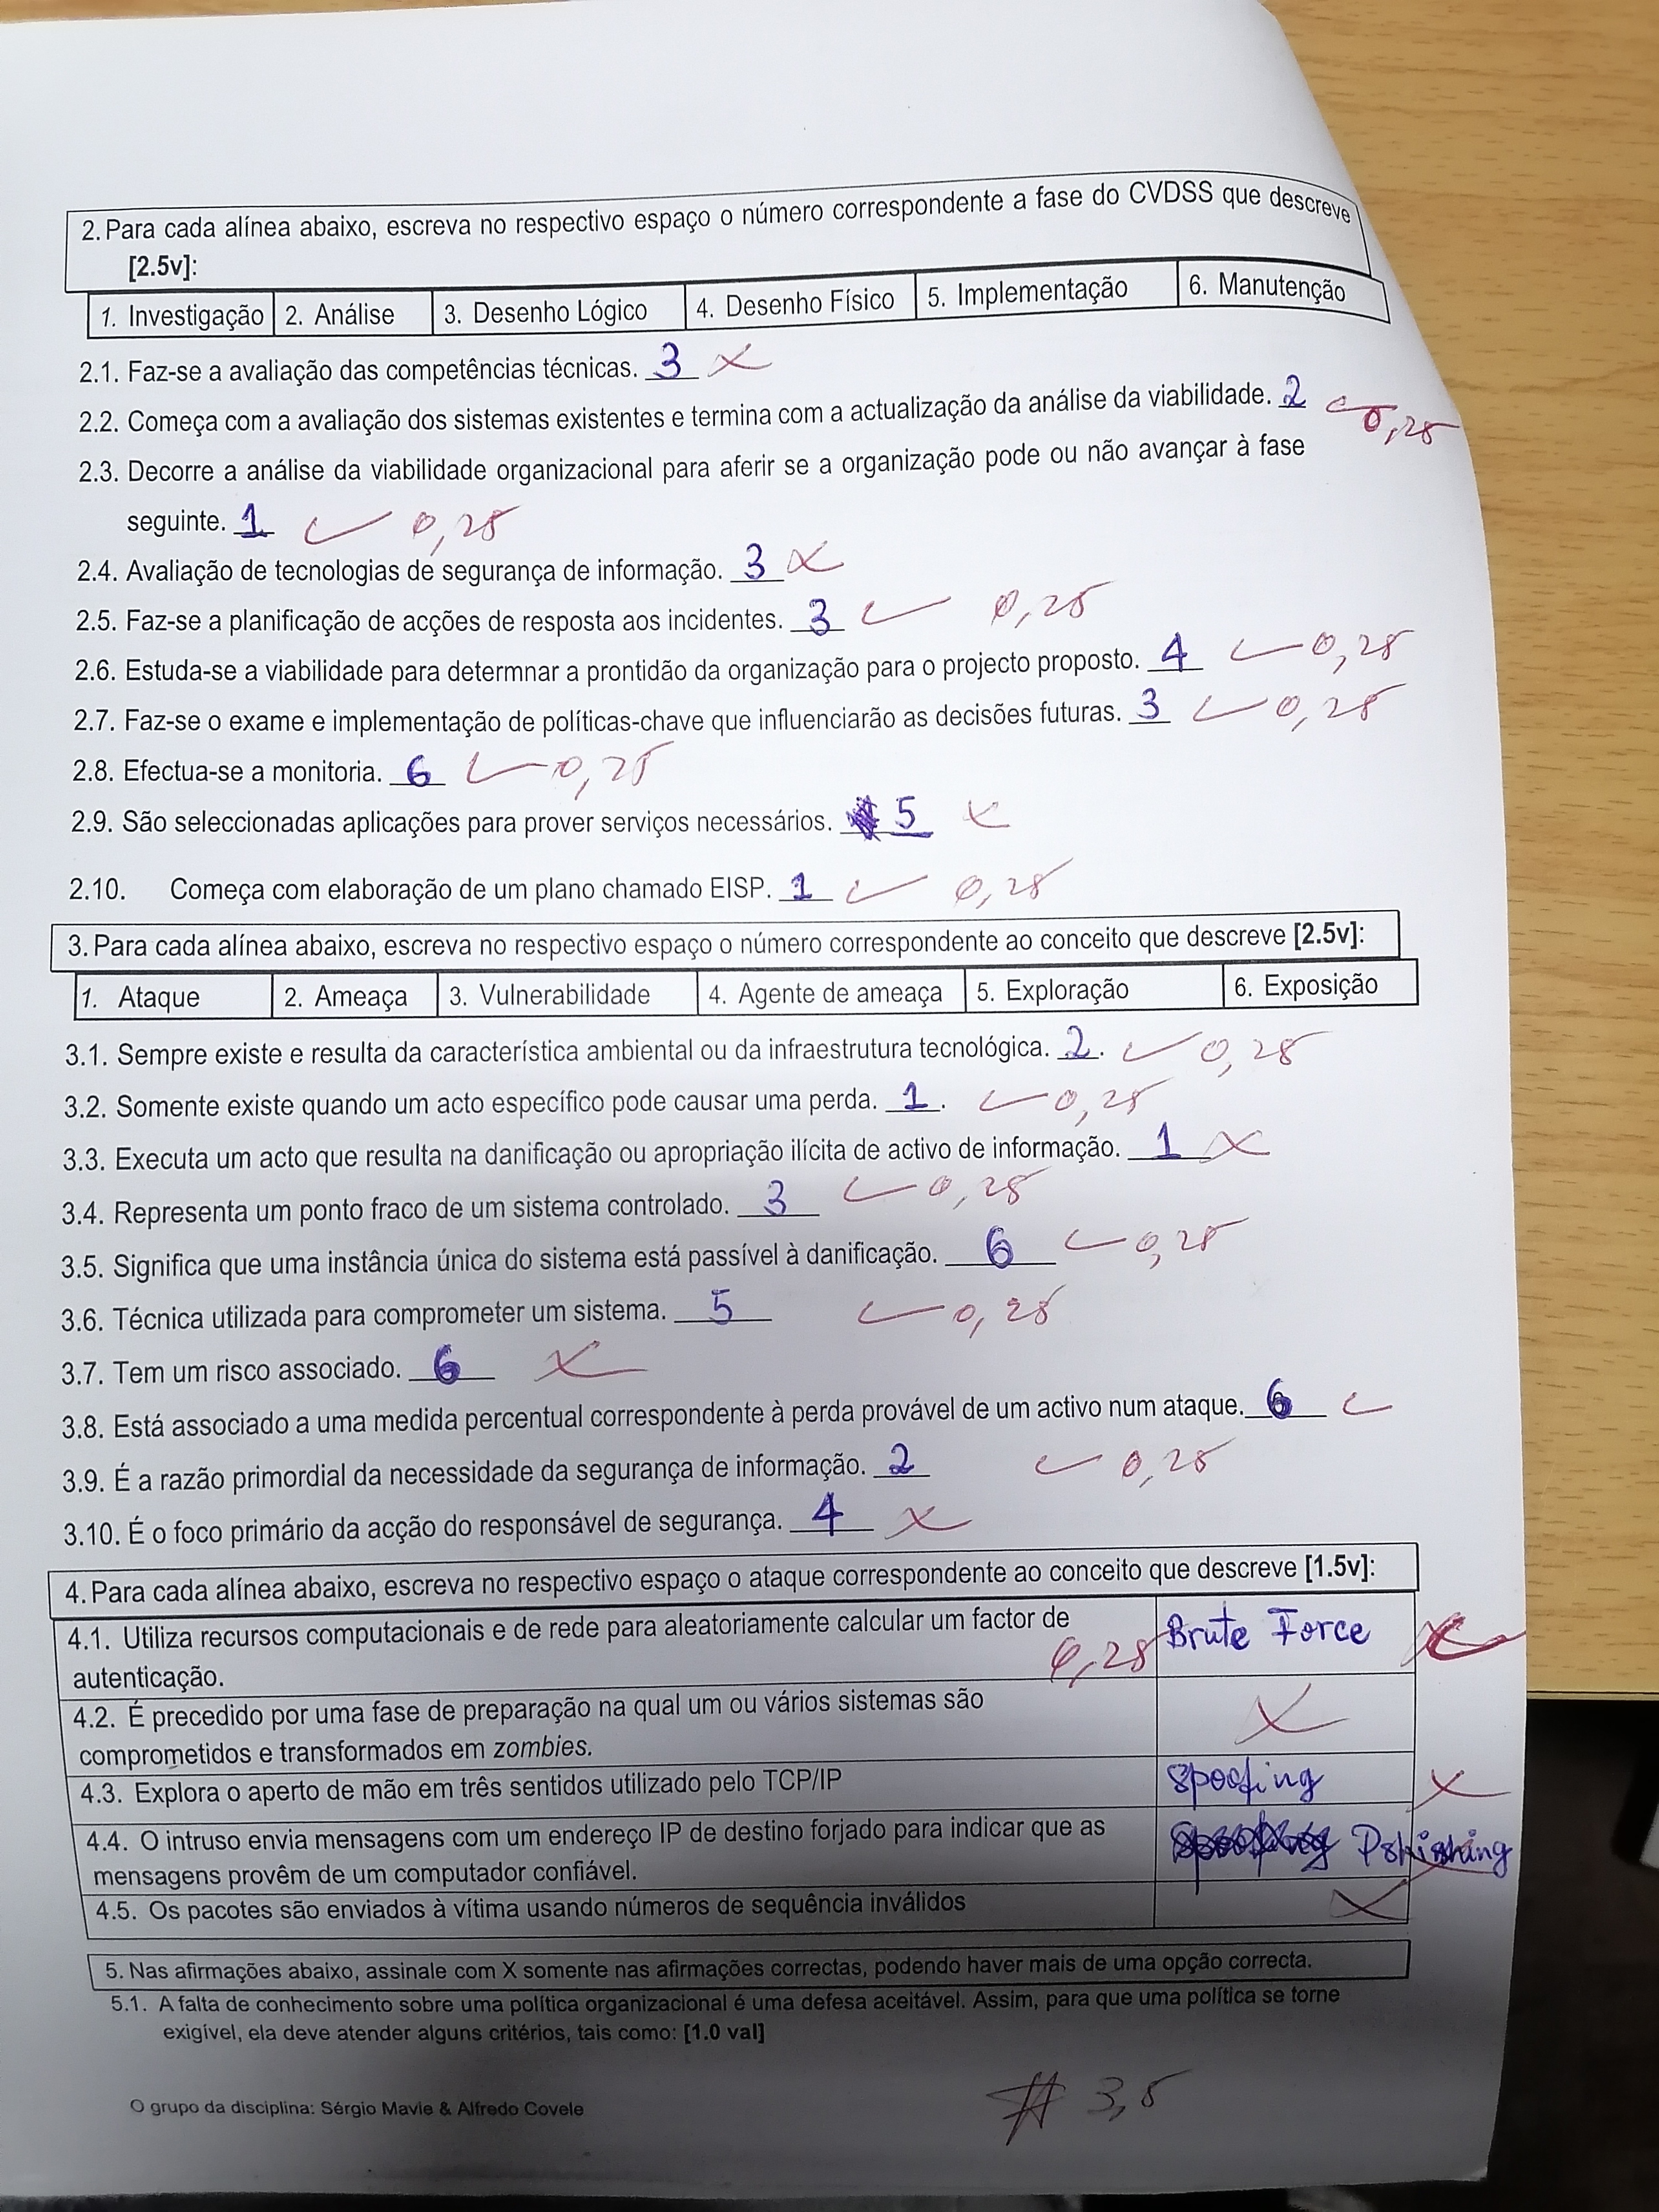 2. Para cada alínea abaixo, escreva no respectivo espaço o número correspondente a fase do CVDSS que descreve
[2.5v]:
1. Investigação 2. Análise 3. Desenho Lógico 4. Desenho Físico 5. Implementação 6. Manutenção
2.1. Faz-se a avaliação das competências técnicas. 3
2.2. Começa com a avaliação dos sistemas existentes e termina com a actualização da análise da viabilidade. 2 0,25
2.3. Decorre a análise da viabilidade organizacional para aferir se a organização pode ou não avançar à fase
seguinte. 1 0,25
2.4. Avaliação de tecnologias de segurança de informação. 3
2.5. Faz-se a planificação de acções de resposta aos incidentes. 3 0,25
2.6. Estuda-se a viabilidade para determnar a prontidão da organização para o projecto proposto. 4 0,25
2.7. Faz-se o exame e implementação de políticas-chave que influenciarão as decisões futuras. 3 0,25
2.8. Efectua-se a monitoria. 6 0,25
2.9. São seleccionadas aplicações para prover serviços necessários. 5
2.10. Começa com elaboração de um plano chamado EISP. 1 0,25
3. Para cada alínea abaixo, escreva no respectivo espaço o número correspondente ao conceito que descreve [2.5v]:
1. Ataque 2. Ameaça 3. Vulnerabilidade 4. Agente de ameaça 5. Exploração 6. Exposição
3.1. Sempre existe e resulta da característica ambiental ou da infraestrutura tecnológica. 2. 0,25
3.2. Somente existe quando um acto específico pode causar uma perda. 1. 0,25
3.3. Executa um acto que resulta na danificação ou apropriação ilícita de activo de informação. 1
3.4. Representa um ponto fraco de um sistema controlado. 3 0,25
3.5. Significa que uma instância única do sistema está passível à danificação. 6 0,25
3.6. Técnica utilizada para comprometer um sistema. 5 0,25
3.7. Tem um risco associado. 6
3.8. Está associado a uma medida percentual correspondente à perda provável de um activo num ataque. 6
3.9. É a razão primordial da necessidade da segurança de informação. 2 0,25
3.10. É o foco primário da acção do responsável de segurança. 4
4. Para cada alínea abaixo, escreva no respectivo espaço o ataque correspondente ao conceito que descreve [1.5v]:
4.1. Utiliza recursos computacionais e de rede para aleatoriamente calcular um factor de Brute Force
autenticação. 0,25
4.2. É precedido por uma fase de preparação na qual um ou vários sistemas são
comprometidos e transformados em zombies.
4.3. Explora o aperto de mão em três sentidos utilizado pelo TCP/IP Spoofing
4.4. O intruso envia mensagens com um endereço IP de destino forjado para indicar que as
mensagens provêm de um computador confiável.
4.5. Os pacotes são enviados à vítima usando números de sequência inválidos
5. Nas afirmações abaixo, assinale com X somente nas afirmações correctas, podendo haver mais de uma opção correcta.
5.1. A falta de conhecimento sobre uma política organizacional é uma defesa aceitável. Assim, para que uma política se torne
exigível, ela deve atender alguns critérios, tais como: [1.0 val]
O grupo da disciplina: Sérgio Mavie & Alfredo Covele
# 3,5